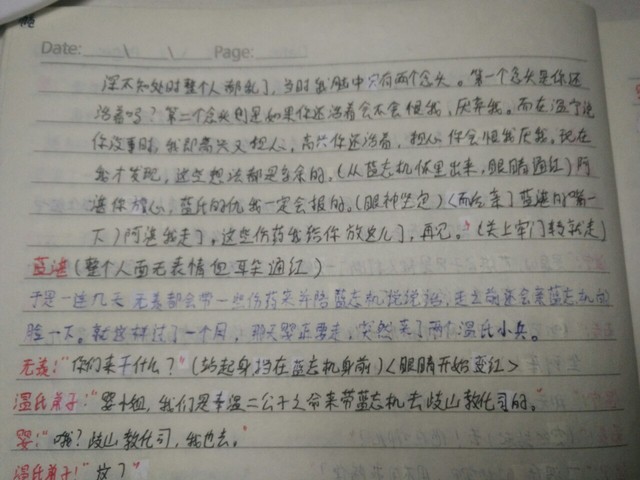 Date: \ \ Page:
深不知处时整个人都乱了，当时我脑中只有两个念头。第一个念头是你还
活着吗？第二个念头则是如果你还活着会不会恨我，厌弃我。而在温宁说
你没事时，我即高兴又担心，高兴你还活着，担心你会恨我厌我。现在
我才发现，这些想法都是多余的。（从蓝忘机怀里出来，眼睛通红）阿
湛你放心，蓝氏的仇我一定会报的。（眼神坚定）〈而后亲了蓝湛的嘴一
下〉阿湛我走了，这些伤药我给你放这儿了，再见。”（关上牢门转就走）
蓝湛（整个人面无表情但耳尖通红）
于是一连几天无羡都会带一些伤药来并陪蓝忘机说说话，走之前还会亲蓝忘机的
脸一下。就这样过了一个月，那天婴正要走，突然来了两个温氏小兵。
无羡：“你们来干什么？”（站起身挡在蓝忘机身前）〈眼睛开始变红〉
温氏弟子：“婴小姐，我们是奉温二公子之命来带蓝忘机去歧山教化司的。”
婴：“哦？歧山教化司，我也去。”
温氏弟子：“这？”